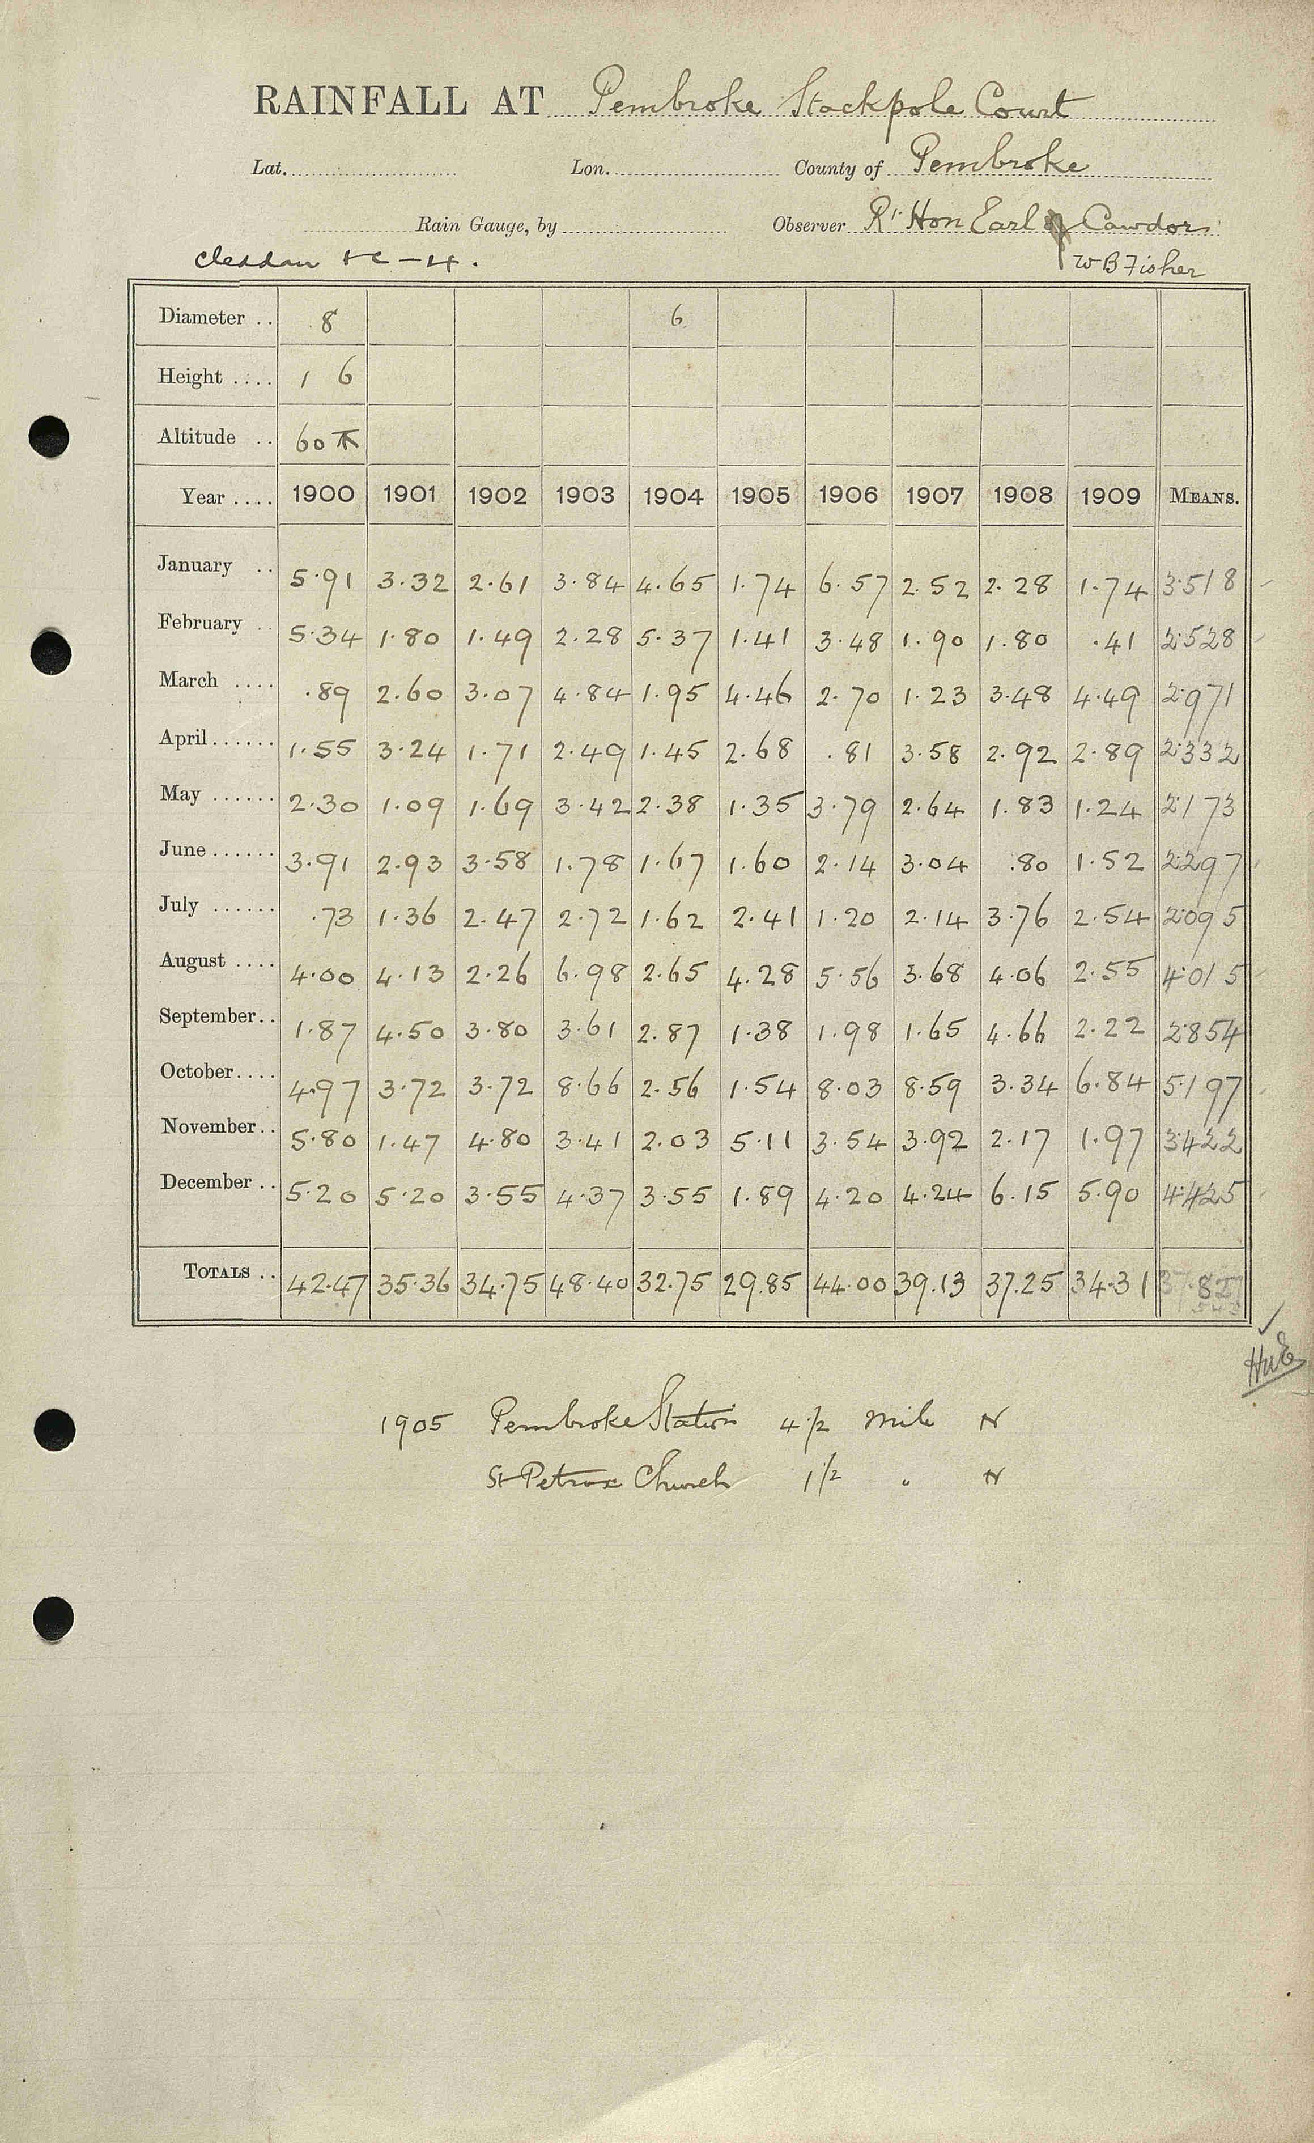 RAINFALL AT Pembroke Stackpole Court
Lat. Lon. County of Pembroke
Rain Gauge, by Observer Rt Hon Earl of Cawdor
W B Fisher
Diameter .. 8 6
Height .... 1 6
Altitude .. 60
Year .... 1900 1901 1902 1903 1904 1905 1906 1907 1908 1909 MEANS.
January .. 5.91 3.32 2.61 3.84 4.65 1.74 6.57 2.52 2.28 1.74 3.518
February .. 5.34 1.80 1.49 2.28 5.37 1.41 3.48 1.90 1.80 .41 2.528
March .... .89 2.60 3.07 4.84 1.95 4.46 2.70 1.23 3.48 4.49 2.971
April...... 1.55 3.24 1.71 2.49 1.45 2.68 .81 3.58 2.92 2.89 2.332
May ...... 2.30 1.09 1.69 3.42 2.38 1.35 3.79 2.64 1.83 1.24 2.173
June...... 3.91 2.93 3.58 1.78 1.67 1.60 2.14 3.04 .80 1.52 2.297
July ...... .73 1.36 2.47 2.72 1.62 2.41 1.20 2.14 3.76 2.54 2.095
August .... 4.00 4.13 2.26 6.98 2.65 4.28 5.56 3.68 4.06 2.55 4.015
September.. 1.87 4.50 3.80 3.61 2.87 1.38 1.98 1.65 4.66 2.22 2.854
October.... 4.97 3.72 3.72 8.66 2.56 1.54 8.03 8.59 3.34 6.84 5.197
November.. 5.80 1.47 4.80 3.41 2.03 5.11 3.54 3.92 2.17 1.97 3.422
December .. 5.20 5.20 3.55 4.37 3.55 1.89 4.20 4.24 6.15 5.90 4.425
TOTALS .. 42.47 35.36 34.75 48.40 32.75 29.85 44.00 39.13 37.25 34.31
1905 Pembroke Station 4 1/2 mile N
St Petrox Church 1 1/2 " N